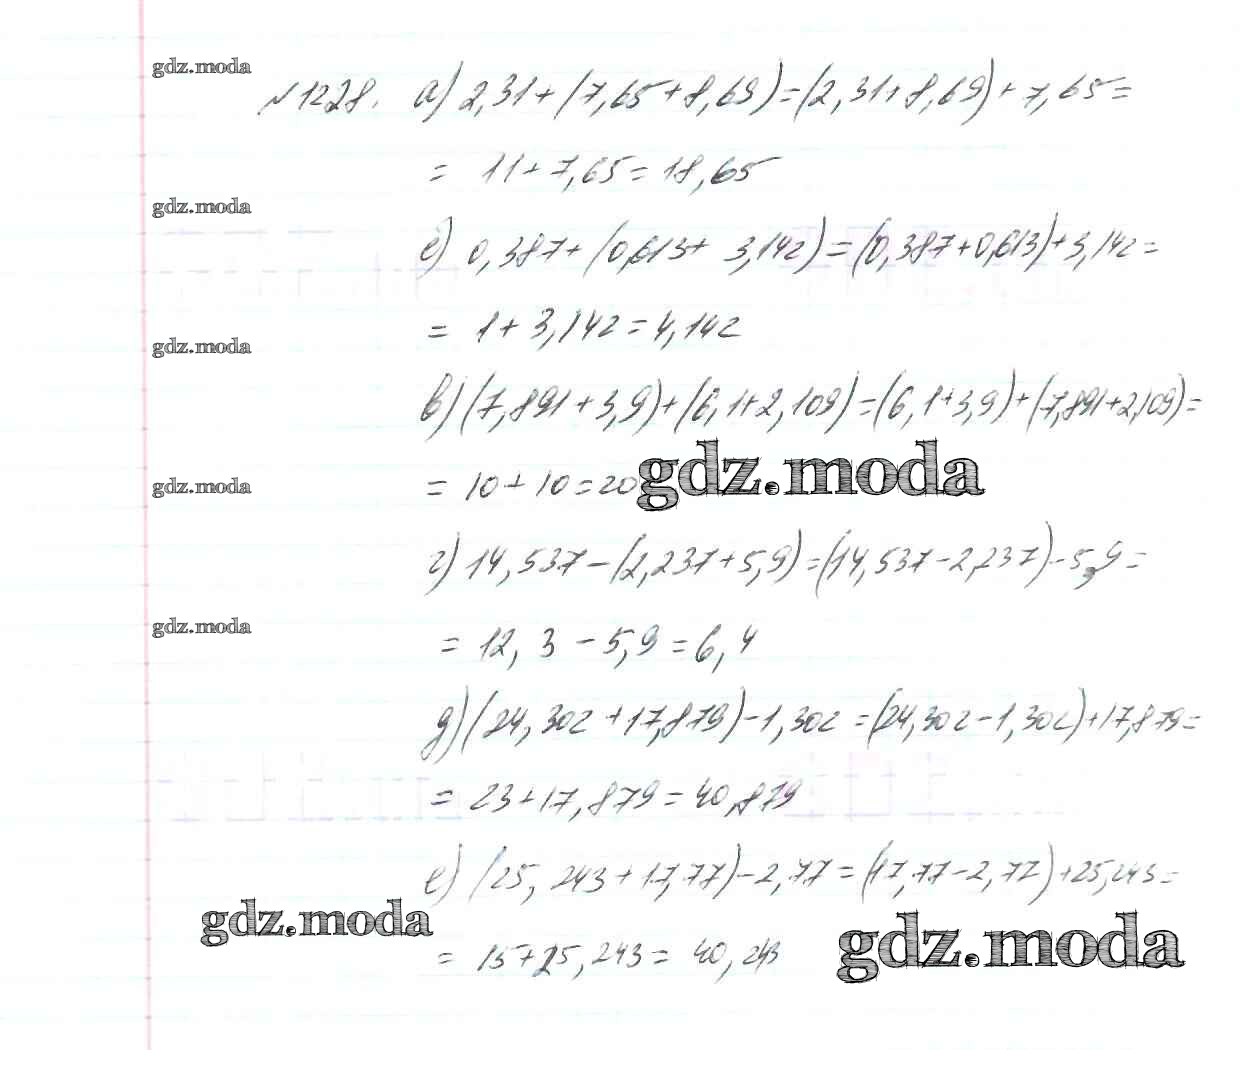 gdz.moda
№1228. а) 2,31+(7,65+8,69)=(2,31+8,69)+7,65=
= 11+7,65=18,65
gdz.moda
б) 0,387+(0,613+3,142)=(0,387+0,613)+3,142=
= 1+3,142=4,142
gdz.moda
в) (7,891+3,9)+(6,1+2,109)=(6,1+3,9)+(7,891+2,109)=
gdz.moda
= 10+10=20
gdz.moda
г) 14,537-(2,237+5,9)=(14,537-2,237)-5,9=
gdz.moda
= 12,3-5,9=6,4
д) (24,302+17,879)-1,302=(24,302-1,302)+17,879=
= 23+17,879=40,879
е) (25,243+17,77)-2,77=(17,77-2,77)+25,243=
gdz.moda
= 15+25,243=40,243
gdz.moda